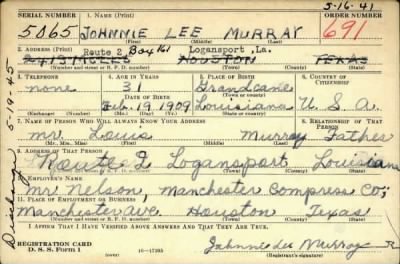 5-16-41
SERIAL NUMBER 1. NAME (Print) ORDER NUMBER
5065 JOHNNIE LEE MURRAY 691
(First) (Middle) (Last)
2. ADDRESS (Print) Route 2, Box 161 Logansport, La.
HOUSTON TEXAS
(Number and street or R. F. D. number) (Town) (County) (State)
3. TELEPHONE 4. AGE IN YEARS 5. PLACE OF BIRTH 6. COUNTRY OF CITIZENSHIP
none 31 Grand Cane
DATE OF BIRTH (Town or county)
Feb. 19 1909 Louisiana U. S. A.
(Exchange) (Number) (Mo.) (Day) (Yr.) (State or country)
7. NAME OF PERSON WHO WILL ALWAYS KNOW YOUR ADDRESS 8. RELATIONSHIP OF THAT PERSON
Mr. Louis Murray Father
(Mr., Mrs., Miss) (First) (Middle) (Last)
9. ADDRESS OF THAT PERSON
Route 2 Logansport Louisiana
(Number and street or R. F. D. number) (Town) (County) (State)
10. EMPLOYER'S NAME
Mr Nelson, Manchester Compress Co;
11. PLACE OF EMPLOYMENT OR BUSINESS
Manchester Ave. Houston Texas
(Number and street or R. F. D. number) (Town) (County) (State)
I AFFIRM THAT I HAVE VERIFIED ABOVE ANSWERS AND THAT THEY ARE TRUE.
REGISTRATION CARD
D. S. S. FORM 1 (over) 16-17105 Johnnie Lee Murray
(Registrant's signature)
5-19-45